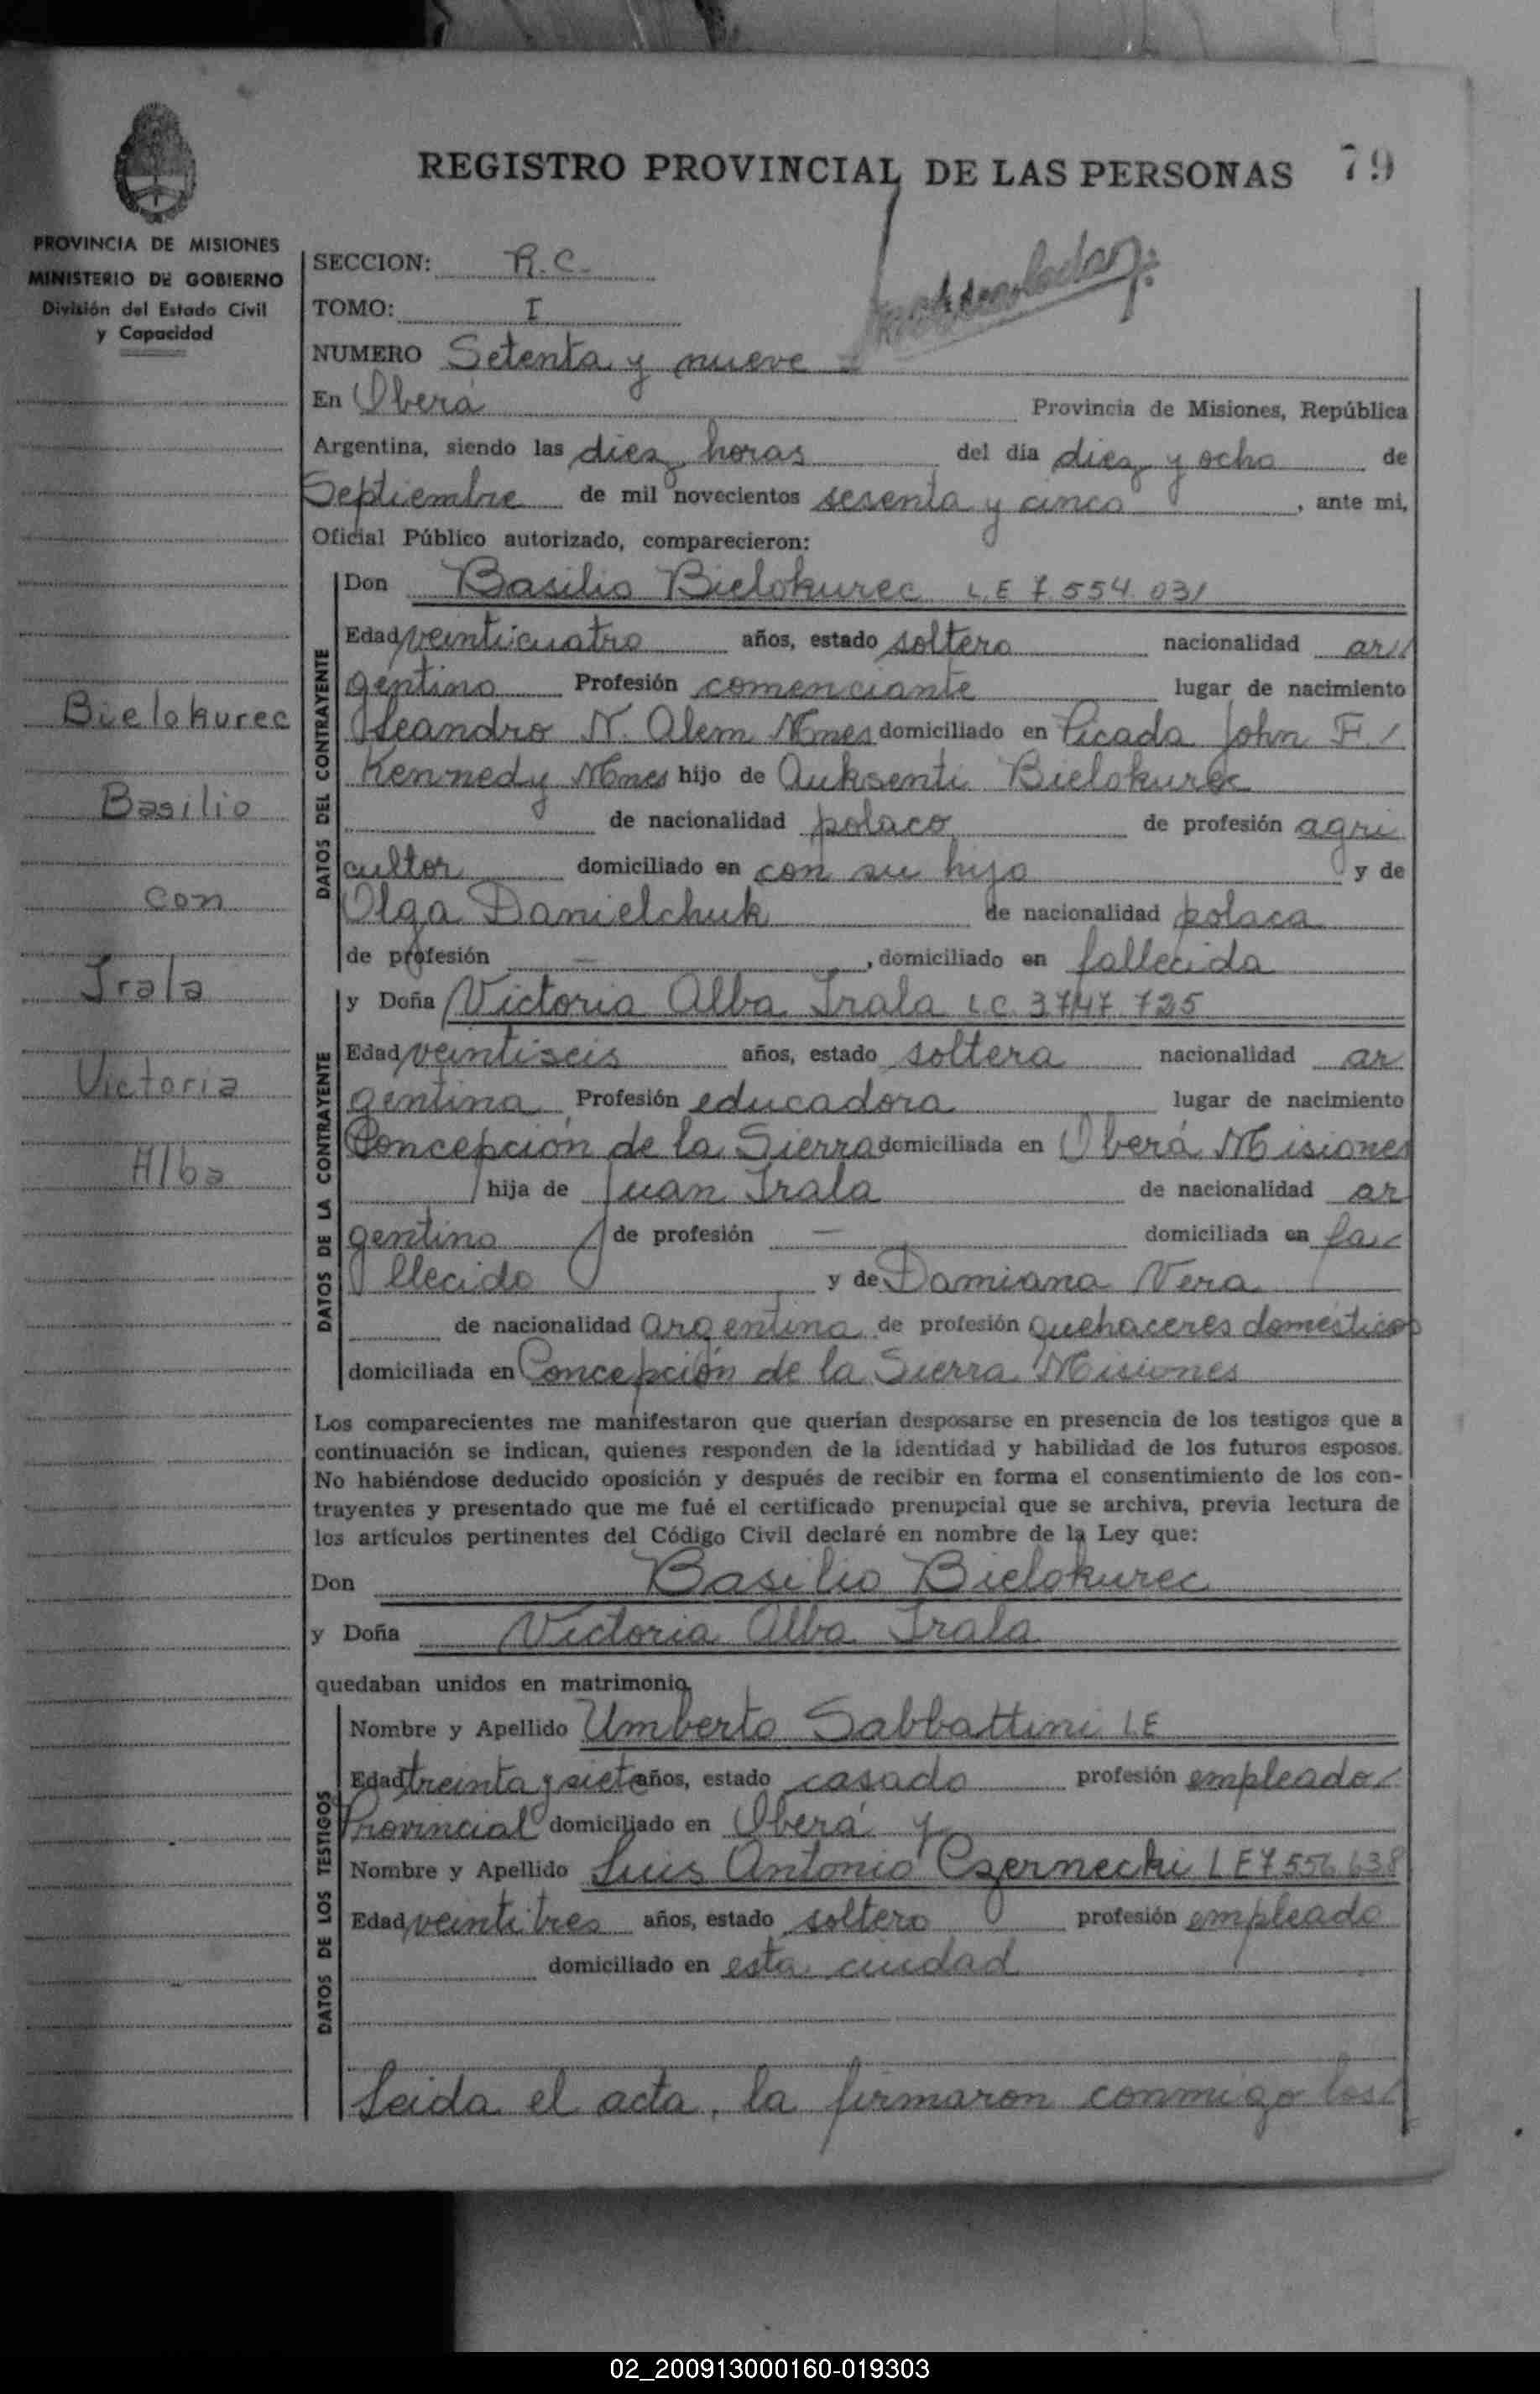 REGISTRO PROVINCIAL DE LAS PERSONAS 79
PROVINCIA DE MISIONES
MINISTERIO DE GOBIERNO
División del Estado Civil
y Capacidad
SECCION: R.C.
TOMO: I
NUMERO Setenta y nueve =
En Oberá Provincia de Misiones, República
Argentina, siendo las diez horas del día diez y ocho de
Septiembre de mil novecientos sesenta y cinco, ante mi,
Oficial Público autorizado, comparecieron:
DATOS DEL CONTRAYENTE
Don Basilio Bielokurec L.E 7.554.031
Edad veinticuatro años, estado soltero nacionalidad ar
gentino Profesión comerciante lugar de nacimiento
Leandro N. Alem Mnes domiciliado en Picada John F.
Kennedy Mnes hijo de Auksenti Bielokurec
de nacionalidad polaco de profesión agri
cultor domiciliado en con su hijo y de
Olga Danielchuk de nacionalidad polaca
de profesión — , domiciliado en fallecida
DATOS DE LA CONTRAYENTE
y Doña Victoria Alba Irala L.C. 3.747.725
Edad veintiseis años, estado soltera nacionalidad ar
gentina Profesión educadora lugar de nacimiento
Concepción de la Sierra domiciliada en Oberá Misiones
hija de Juan Irala de nacionalidad ar
gentino de profesión — domiciliada en fa
llecido y de Damiana Vera
de nacionalidad argentina de profesión quehaceres domésticos
domiciliada en Concepción de la Sierra Misiones
Los comparecientes me manifestaron que querían desposarse en presencia de los testigos que a
continuación se indican, quienes responden de la identidad y habilidad de los futuros esposos.
No habiéndose deducido oposición y después de recibir en forma el consentimiento de los con-
trayentes y presentado que me fué el certificado prenupcial que se archiva, previa lectura de
los artículos pertinentes del Código Civil declaré en nombre de la Ley que:
Don Basilio Bielokurec
y Doña Victoria Alba Irala
quedaban unidos en matrimonio.
DATOS DE LOS TESTIGOS
Nombre y Apellido Umberto Sabbattini LE
Edad treinta y siete años, estado casado profesión empleado
Provincial domiciliado en Oberá y
Nombre y Apellido Luis Antonio Czernecki LE 7.556.638
Edad veintitres años, estado soltero profesión empleado
domiciliado en esta ciudad
Leida el acta, la firmaron conmigo los
Bielokurec
Basilio
con
Irala
Victoria
Alba
02_200913000160-019303